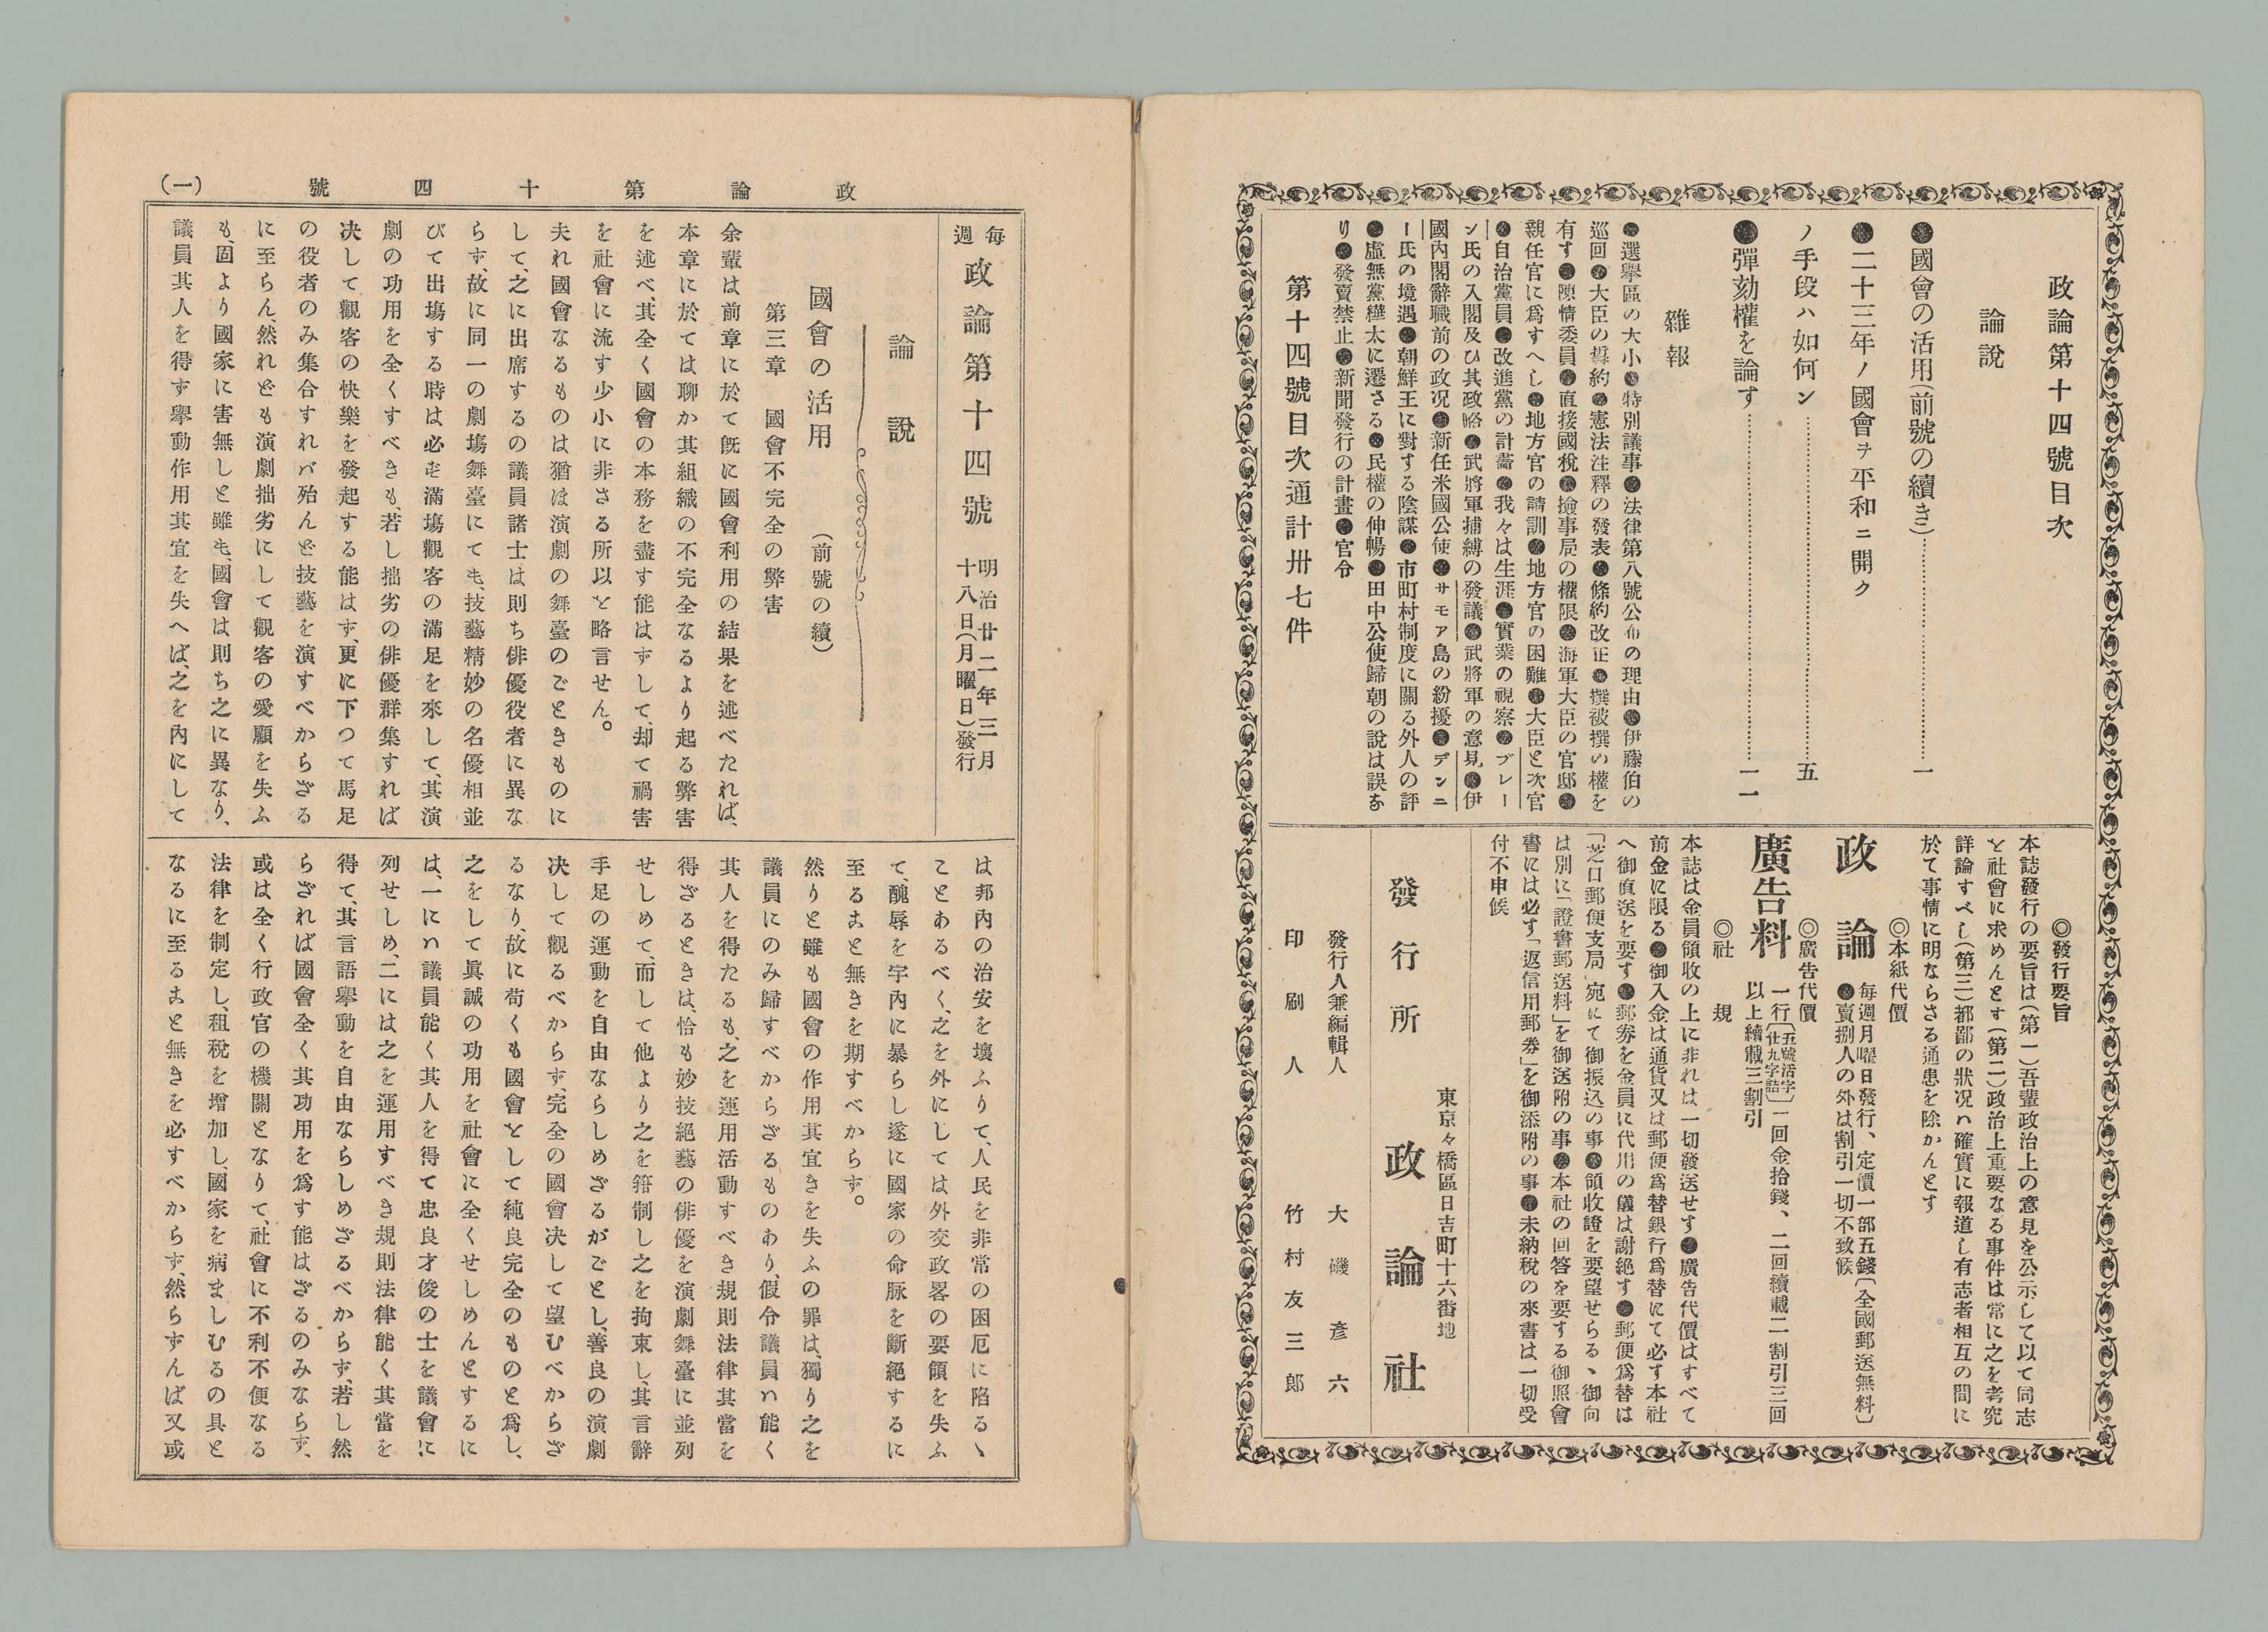 政論第十四號目次
論說
●國會の活用(前號の續き)…………一
●二十三年ノ國會ヲ平和ニ開ク
ノ手段ハ如何ン…………五
●彈劾權を論す…………一一
雜報
●選擧區の大小●特別議事●法律第八號公布の理由●伊藤伯の
巡回●大臣の誓約●憲法注釋の發表●條約改正●撰被撰の權を
有す●陳情委員●直接國稅●撿事局の權限●海軍大臣の官邸●
親任官に爲すへし●地方官の請訓●地方官の困難●大臣と次官
●自治黨員●改進黨の計畵●我々は生涯●實業の視察●ブレー
ン氏の入閣及ひ其政略●武將軍捕縛の發議●武將軍の意見●伊
國內閣辭職前の政况●新任米國公使●サモア島の紛擾●デンニ
ー氏の境遇●朝鮮王に對する陰謀●市町村制度に關る外人の評
●虛無黨樺太に遷さる●民權の伸暢●田中公使歸朝の說は誤な
り●發賣禁止●新聞發行の計畫●官令
第十四號目次通計卅七件
◎發行要旨
本誌發行の要旨は(第一)吾輩政治上の意見を公示して以て同志
を社會に求めんとす(第二)政治上重要なる事件は常に之を考究
詳論すべし(第三)都鄙の狀况ハ確實に報道し有志者相互の間に
於て事情に明ならさる通患を除かんとす
◎本紙代價
政論
每週月曜日發行、定價一部五錢〔全國郵送無料〕
●賣捌人の外は割引一切不致候
◎廣告代價
廣告料
一行〔五號活字廿九字詰〕一回金拾錢、二回續載二割引三回
以上續載三割引
◎社規
本誌は金員領收の上に非れは一切發送せす●廣告代價はすべて
前金に限る●御入金は通貨又は郵便爲替銀行爲替にて必す本社
へ御直送を要す●郵券を金員に代用の儀は謝絕す●郵便爲替は
「芝口郵便支局」宛にて御振込の事●領收證を要望せらるゝ御向
は別に「證書郵送料」を御送附の事●本社の回答を要する御照會
書には必す「返信用郵券」を御添附の事●未納稅の來書は一切受
付不申候
東京々橋區日吉町十六番地
發行所 政論社
發行人兼編輯人 大磯彥六
印刷人 竹村友三郎
政論第十四號 (一)
每週 政論第十四號 明治廿二年三月十八日(月曜日)發行
論說
國會の活用 (前號の續)
第三章 國會不完全の弊害
余輩は前章に於て旣に國會利用の結果を述べたれば、
本章に於ては聊か其組織の不完全なるより起る弊害
を述べ、其全く國會の本務を盡す能はずして、却て禍害
を社會に流す少小に非さる所以を略言せん。
夫れ國會なるものは猶ほ演劇の舞臺のごときものに
して、之に出席するの議員諸士は則ち俳優役者に異な
らず、故に同一の劇塲舞臺にても、技藝精妙の名優相並
びて出塲する時は必ず滿塲觀客の滿足を來して、其演
劇の功用を全くすべきも、若し拙劣の俳優群集すれば
决して觀客の快樂を發起する能はず、更に下つて馬足
の役者のみ集合すれバ殆んど技藝を演すべからざる
に至らん、然れども演劇拙劣にして觀客の愛顧を失ふ
も、固より國家に害無しと雖も、國會は則ち之に異なり、
議員其人を得ず擧動作用其宜を失へば、之を內にして
は邦內の治安を壞ふりて、人民を非常の困厄に陷るゝ
ことあるべく、之を外にしては外交政畧の要領を失ふ
て、醜辱を宇內に暴らし遂に國家の命脉を斷絕するに
至るまと無きを期すべからず。
然りと雖も國會の作用其宜きを失ふの罪は、獨り之を
議員にのみ歸すべからざるものあり、假令議員ハ能く
其人を得たるも、之を運用活動すべき規則法律其當を
得ざるときは、恰も妙技絕藝の俳優を演劇舞臺に並列
せしめて、而して他より之を箝制し之を拘束し、其言辭
手足の運動を自由ならしめざるがごとし、善良の演劇
决して觀るべからず、完全の國會决して望むべからざ
るなり、故に苟くも國會をして純良完全のものと爲し、
之をして眞誠の功用を社會に全くせしめんとするに
は、一にハ議員能く其人を得て忠良才俊の士を議會に
列せしめ、二には之を運用すべき規則法律能く其當を
得て、其言語擧動を自由ならしめざるべからず、若し然
らざれば國會全く其功用を爲す能はざるのみならず、
或は全く行政官の機關となりて、社會に不利不便なる
法律を制定し、租稅を增加し、國家を病ましむるの具と
なるに至るまと無きを必すべからず、然らずんば又或